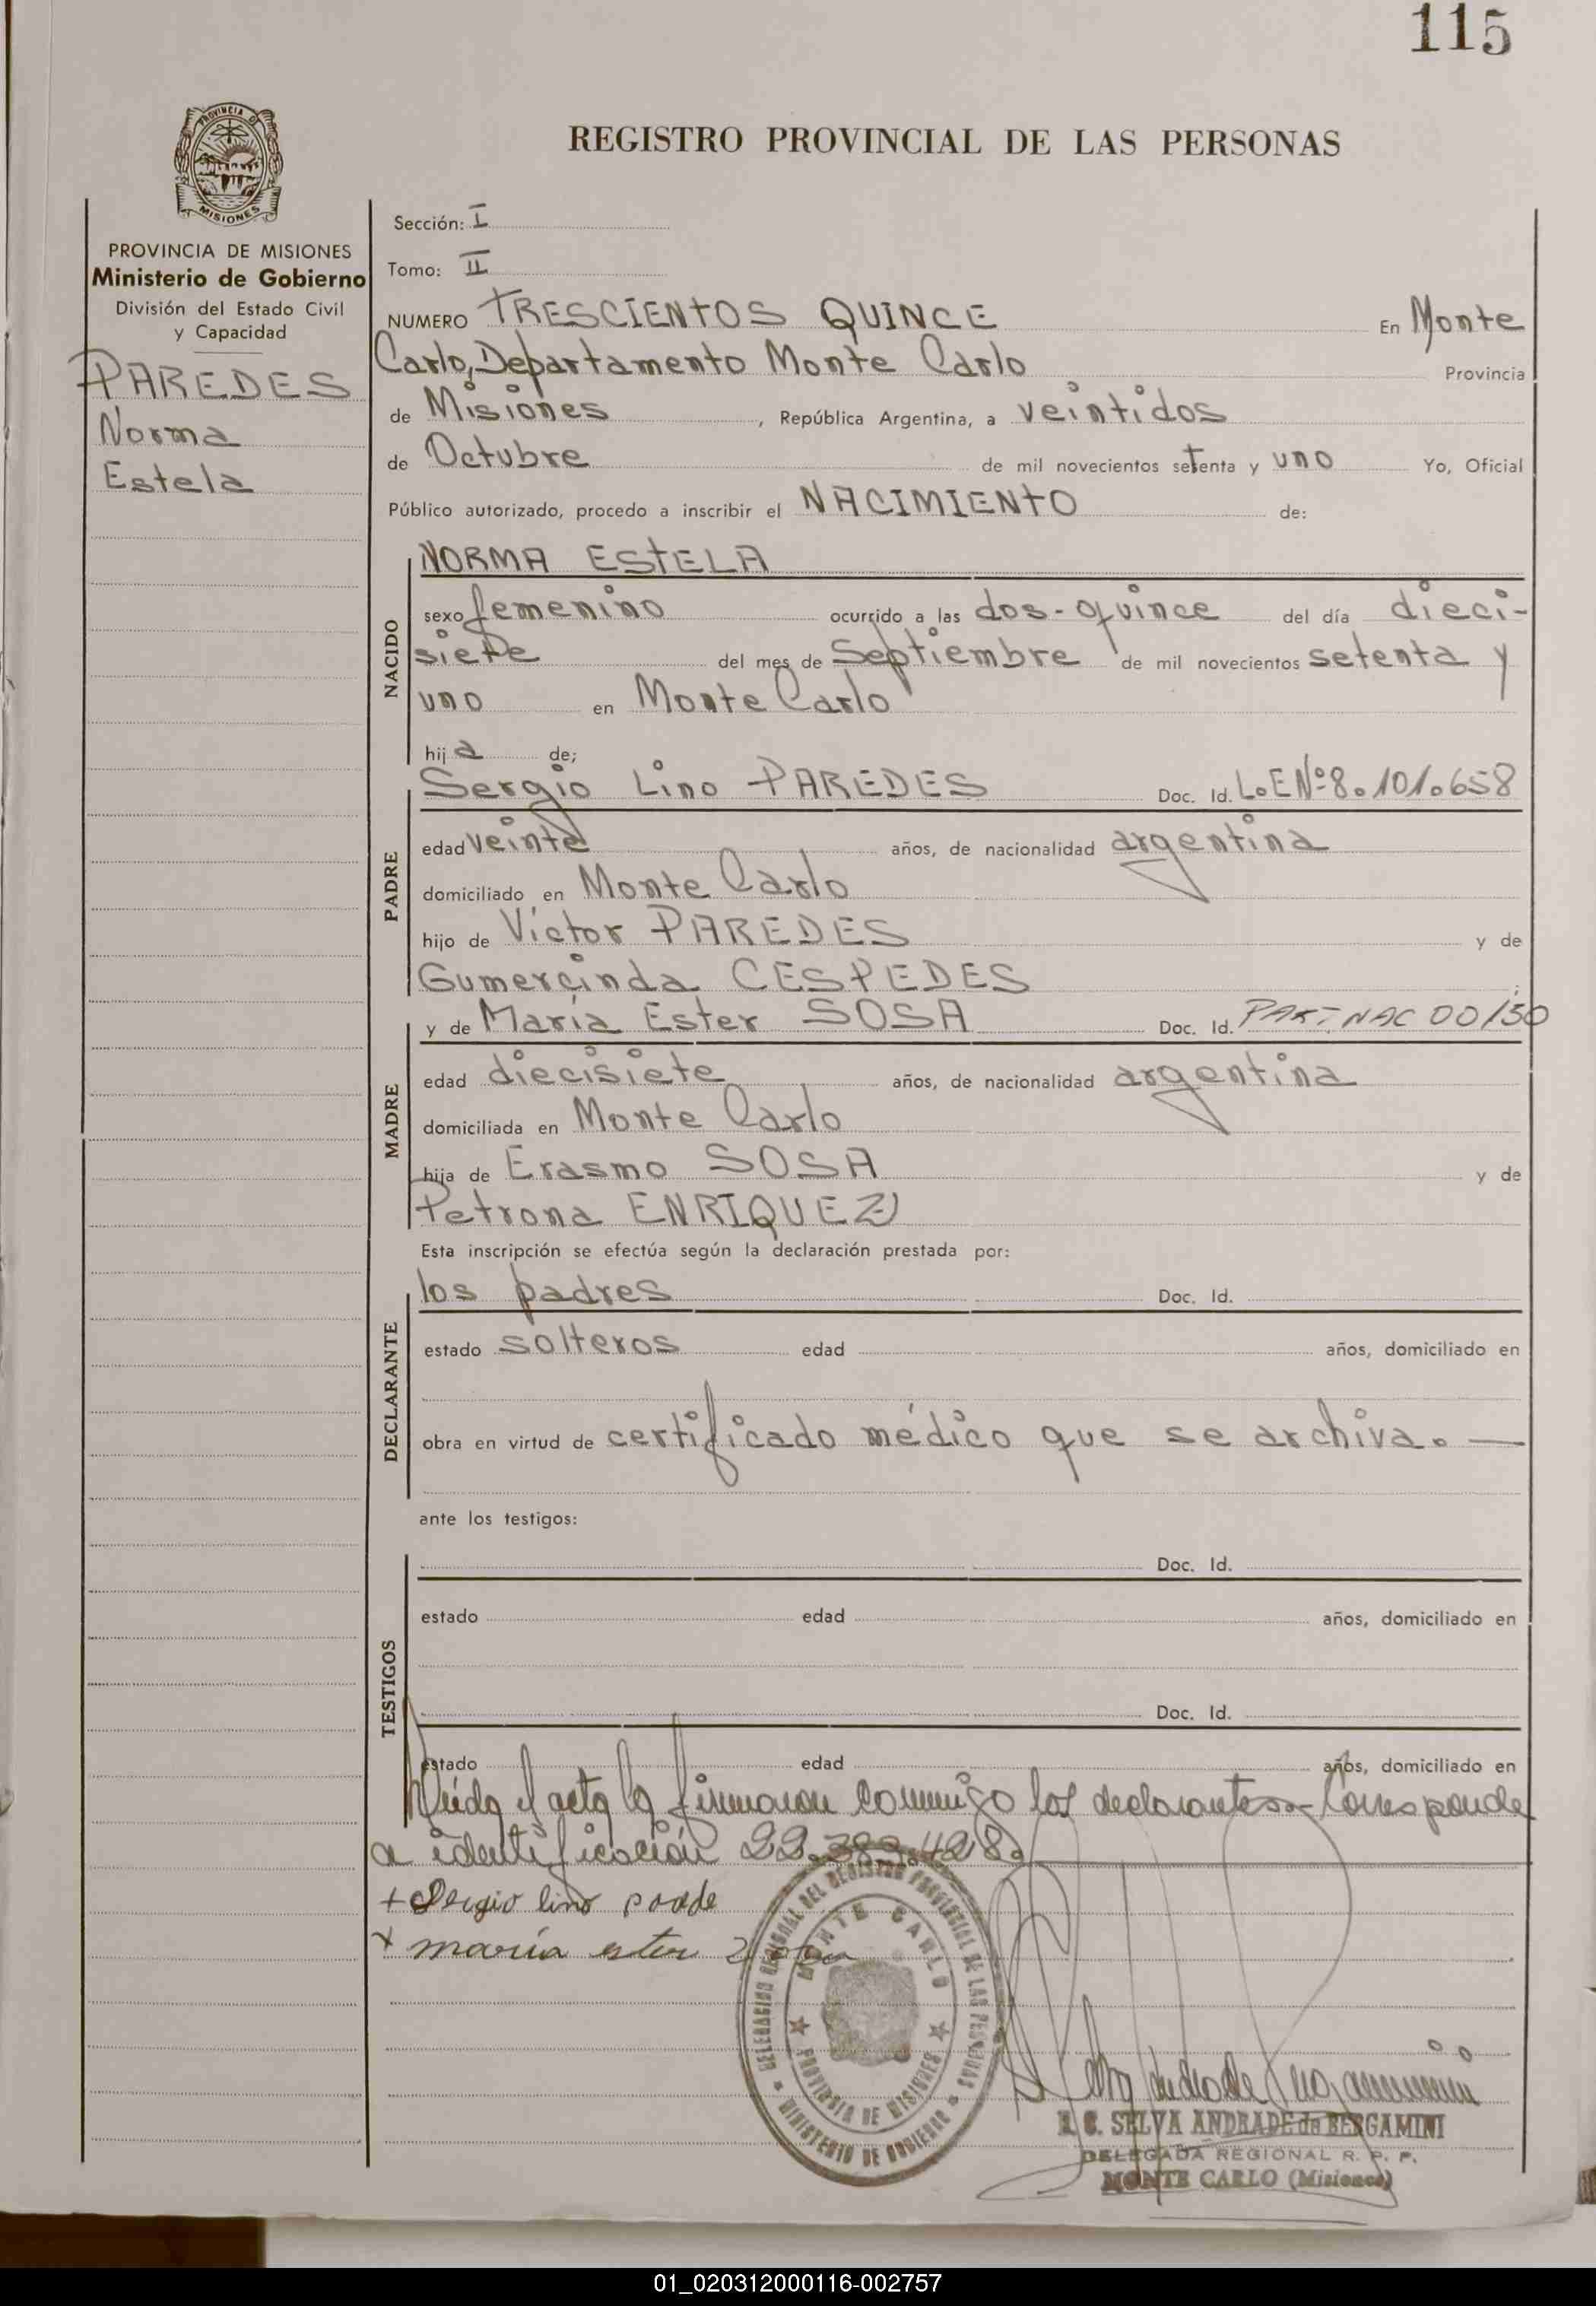 115
REGISTRO PROVINCIAL DE LAS PERSONAS
PROVINCIA DE
MISIONES
PROVINCIA DE MISIONES
Ministerio de Gobierno
División del Estado Civil
y Capacidad
PAREDES
Norma
Estela
Sección: I
Tomo: II
NUMERO TRESCIENTOS QUINCE En Monte
Carlo, Departamento Monte Carlo Provincia
de Misiones, República Argentina, a veintidos
de Octubre de mil novecientos setenta y uno Yo, Oficial
Público autorizado, procedo a inscribir el NACIMIENTO de:
NACIDO
NORMA ESTELA
sexo femenino ocurrido a las dos-quince del día dieci-
siete del mes de Septiembre de mil novecientos setenta y
uno en Monte Carlo
hija de;
PADRE
Sergio Lino PAREDES Doc. Id. L.E Nº 8.101.658
edad veinte años, de nacionalidad argentina
domiciliado en Monte Carlo
hijo de Víctor PAREDES y de
Gumercinda CESPEDES ;
MADRE
y de María Ester SOSA Doc. Id. PART. NAC 00/50
edad diecisiete años, de nacionalidad argentina
domiciliada en Monte Carlo
hija de Erasmo SOSA y de
Petrona ENRIQUEZ
Esta inscripción se efectúa según la declaración prestada por:
DECLARANTE
los padres Doc. Id.
estado solteros edad años, domiciliado en
obra en virtud de certificado médico que se archiva. —
ante los testigos:
TESTIGOS
Doc. Id.
estado edad años, domiciliado en
Doc. Id.
estado edad años, domiciliado en
leída el acta la firmaron conmigo los declarantes.- Corresponde
a identificación 22.382.428.
+ Sergio lino parde
+ maría ester
DELEGACION REGIONAL DEL REGISTRO PROVINCIAL DE LAS PERSONAS
MONTE CARLO
PROVINCIA DE MISIONES
MINISTERIO DE GOBIERNO
SELVA ANDRADE de BERGAMINI
DELEGADA REGIONAL R. P. P.
MONTE CARLO (Misiones)
01_020312000116-002757